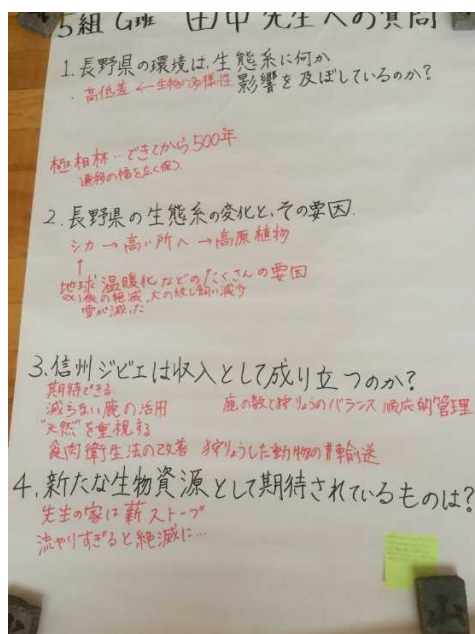 5組 G班 田中先生への質問
1.長野県の環境は、生態系に何か
影響を及ぼしているのか?
・高低差 ← 生物の多様性
極相林…できてから500年
遷移の幅を広く保つ
2.長野県の生態系の変化と、その要因.
シカ → 高い所へ → 高原植物
↑
地球温暖化などのたくさんの要因
の絶滅、犬の放し飼い減少
雪が減った
3.信州ジビエは収入として成り立つのか?
期待できる
減らない鹿の活用
鹿の数と狩りょうのバランス 順応的管理
"天然"を重視する
食肉衛生法の改善 狩りょうした動物の輸送
4.新たな生物資源として期待されているものは?
先生の家は薪ストーブ
流やりすぎると絶滅に…